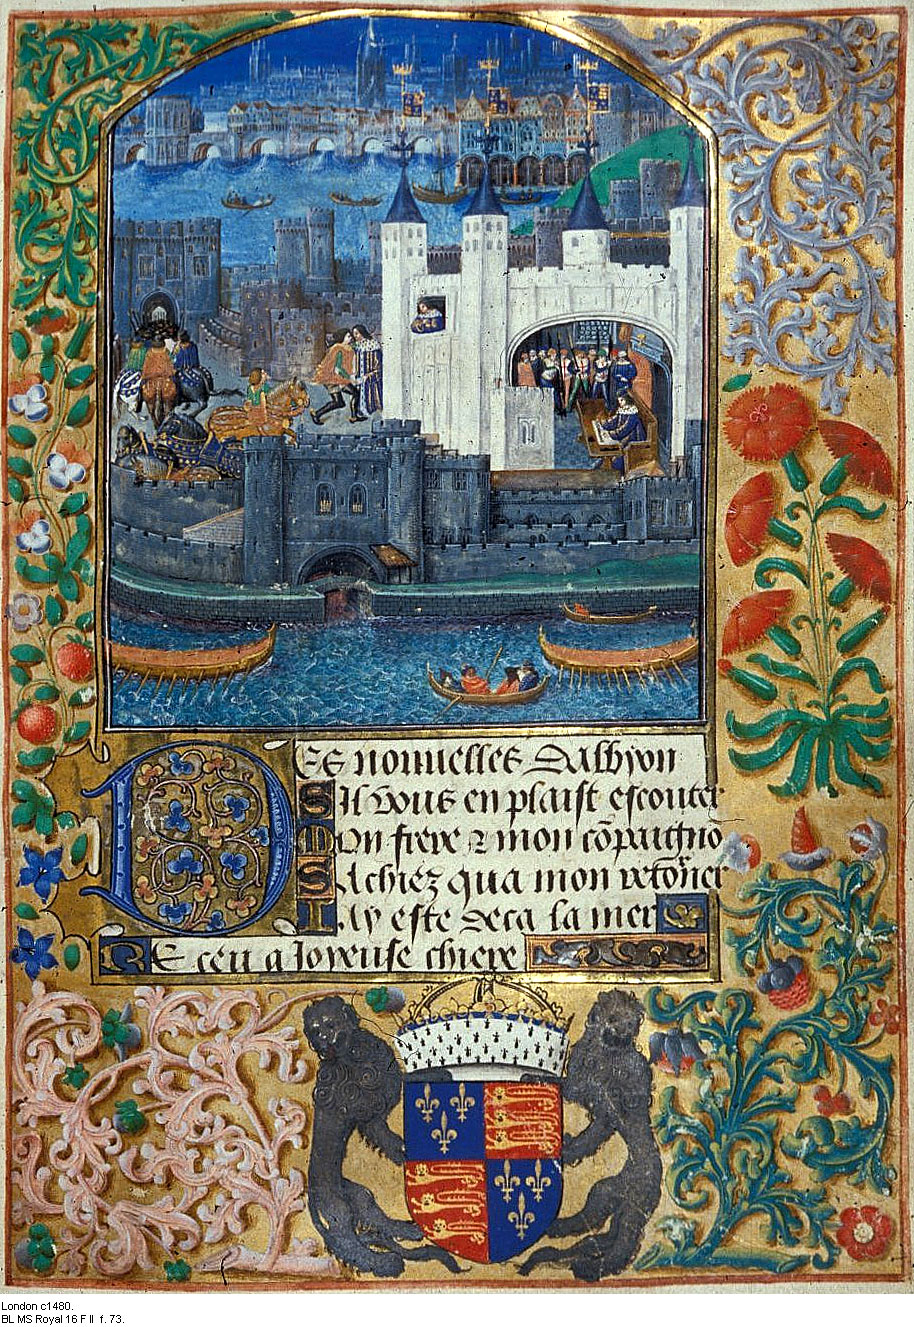 Des nouuelles Dalbyon
Sil vous en plaist escouter
Mon frere ⁊ mon cōpaigno
Sachiez qua mon retor̄ner
Iay este deca la mer
Receu a Ioyeuse chiere
London c1480.
BL MS Royal 16 F II f. 73.